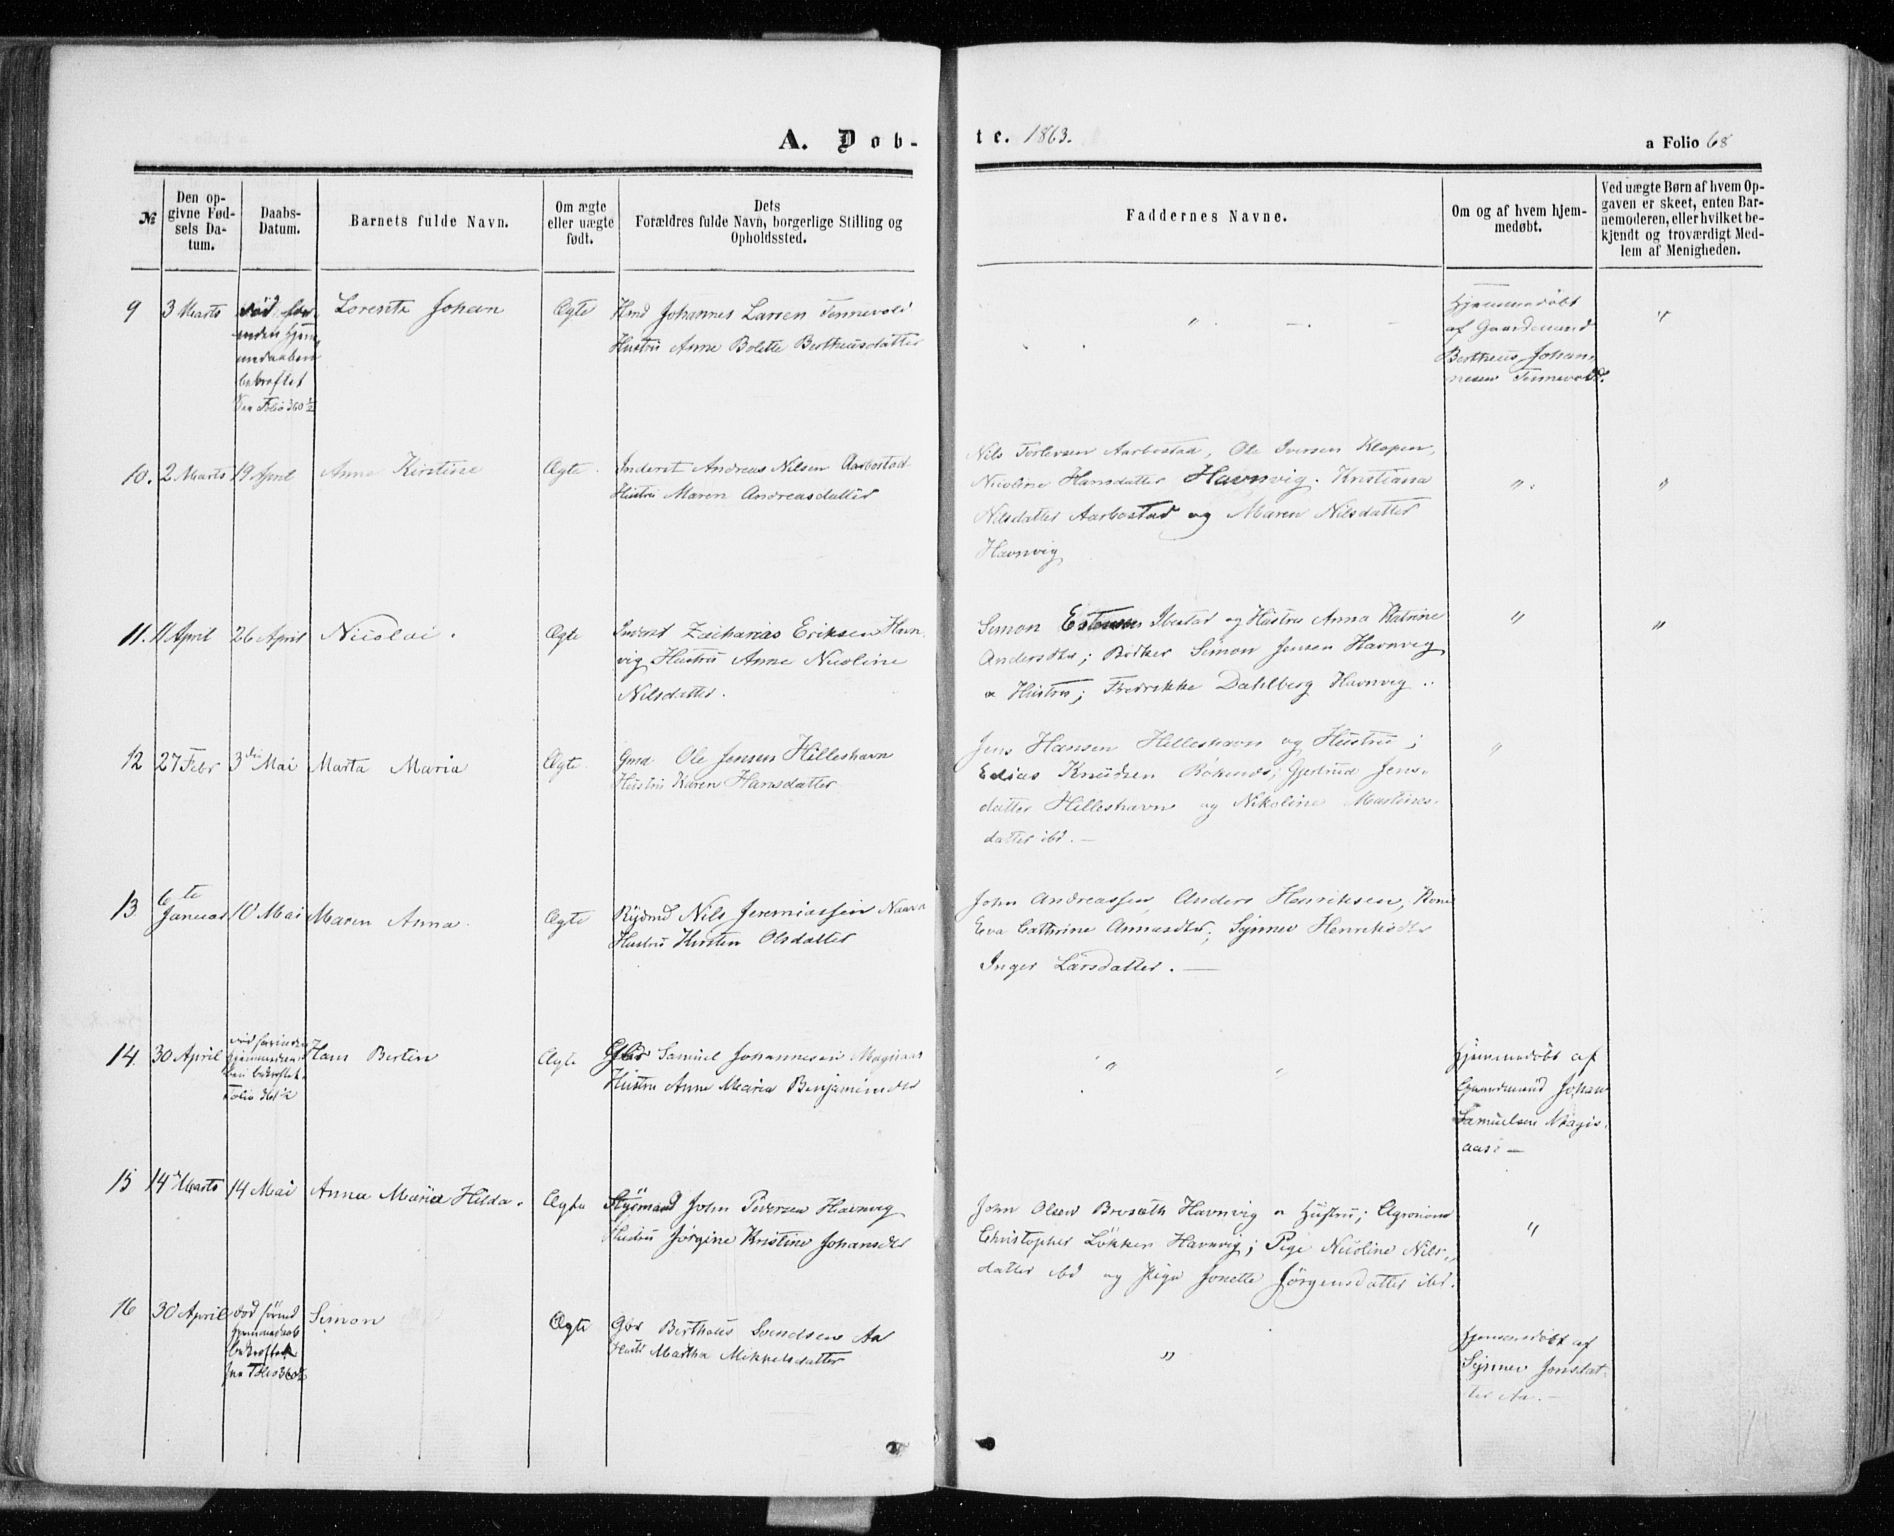 A. Døb-
te. 1863.
a Folio 68
№
Den opgivne Fødsels Datum.
Daabs-Datum.
Barnets fulde Navn.
Om ægte eller uægte født.
Dets Forældres fulde Navn, borgerlige Stilling og Opholdssted.
Faddernes Navne.
Om og af hvem hjemmedøbt.
Ved uægte Børn af hvem Opgaven er skeet, enten Barnemoderen, eller hvilket bekjendt og troværdigt Medlem af Menigheden.
9 3 Marts
død før
bekræftet
Folio 360 ½
Johan
Ægte
Johannes Larsen Tennevold
Hustru Anne Bolette Bertheusdatter
" - -
Hjemmedøbt
af Gaardmand
Bertheus Johan-
nesen Tennevold.
"
10. 2 Marts 19 April Anne Kirstine Ægte.
Inderst Andreas Nilsen Aarbostad
Hustru Maren Andreasdatter
Nils Aarbostad, Ole Iversen
Nicoline Hansdatter Havnvig. Kristiana
Nilsdatter Aarbostad og Maren Nilsdatter
Havnvig
". "
11. 11 April 26 April Nicolai. Ægte
Inderst Zacharias Eriksen Havn-
vig Hustru Anne Nicoline
Nilsdatter.
Simon Ibestad og Hustru Anna Katrine
Andersdtr; Bødker Simon Jensen Havnvig
Hustru; Fredrikke Dahlberg Havnvig.
" "
12 27 Febr 3die Mai Marta Maria Ægte.
Gmd Ole Jensen Hilleshavn
Hustru Karen Hansdatter
Jens Hansen Hilleshavn og Hustru;
Edias Knudsen Gjertrud Jens-
datter Hilleshavn og Nikoline Martines-
datter ibd. -
"
13 6te
Januar 10 Mai Maren Anna. Ægte
Nils Jeremiassen
Hustru Kirsten Olsdatter
John Andreassen, Anders Henriksen, Kone
Eva Cathrine Synnev Henriksdtr
Inger Larsdatter. -
14. 30 April
Folio 361 ½
Hans Bertin Ægte
Samuel Johannesen
Hustru Anne Maria Benjaminsdtr
"
Hjemmedøbt af
Gaardmand Johan
Samuelsen
15 14 Marts 14 Mai Anna Maria Hilda. Ægte
Styrmand John Pedersen Havnvig
Hustru Jørgine Kristine Johansdtr
John Olsen Havnvig Hustru; Agronom
Christopher Løkken Havnvig; Pige Nicoline Nils-
datter ibd og Pige Jonette Jørgensdatter ibd.
"
16 30 April
død
Hjemmedaab
bekræftet
Simon Ægte
Bertheus Svendsen Aa
Martha Mikkelsdatter
"
Hjemmedøbt af
Synnev Jonsdat-
ter Aa. -